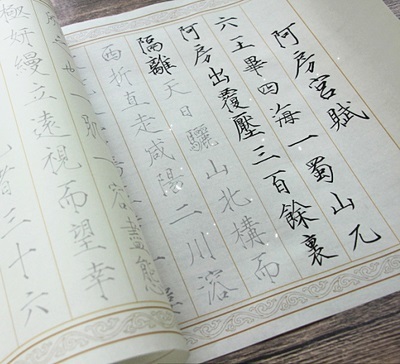 阿房宮賦
六王畢四海一蜀山兀
阿房出覆壓三百餘裏
隔離天日驪山北構而
西折直走咸陽二川溶
一肌一容盡態
極妍縵立遠視而望幸
者三十六